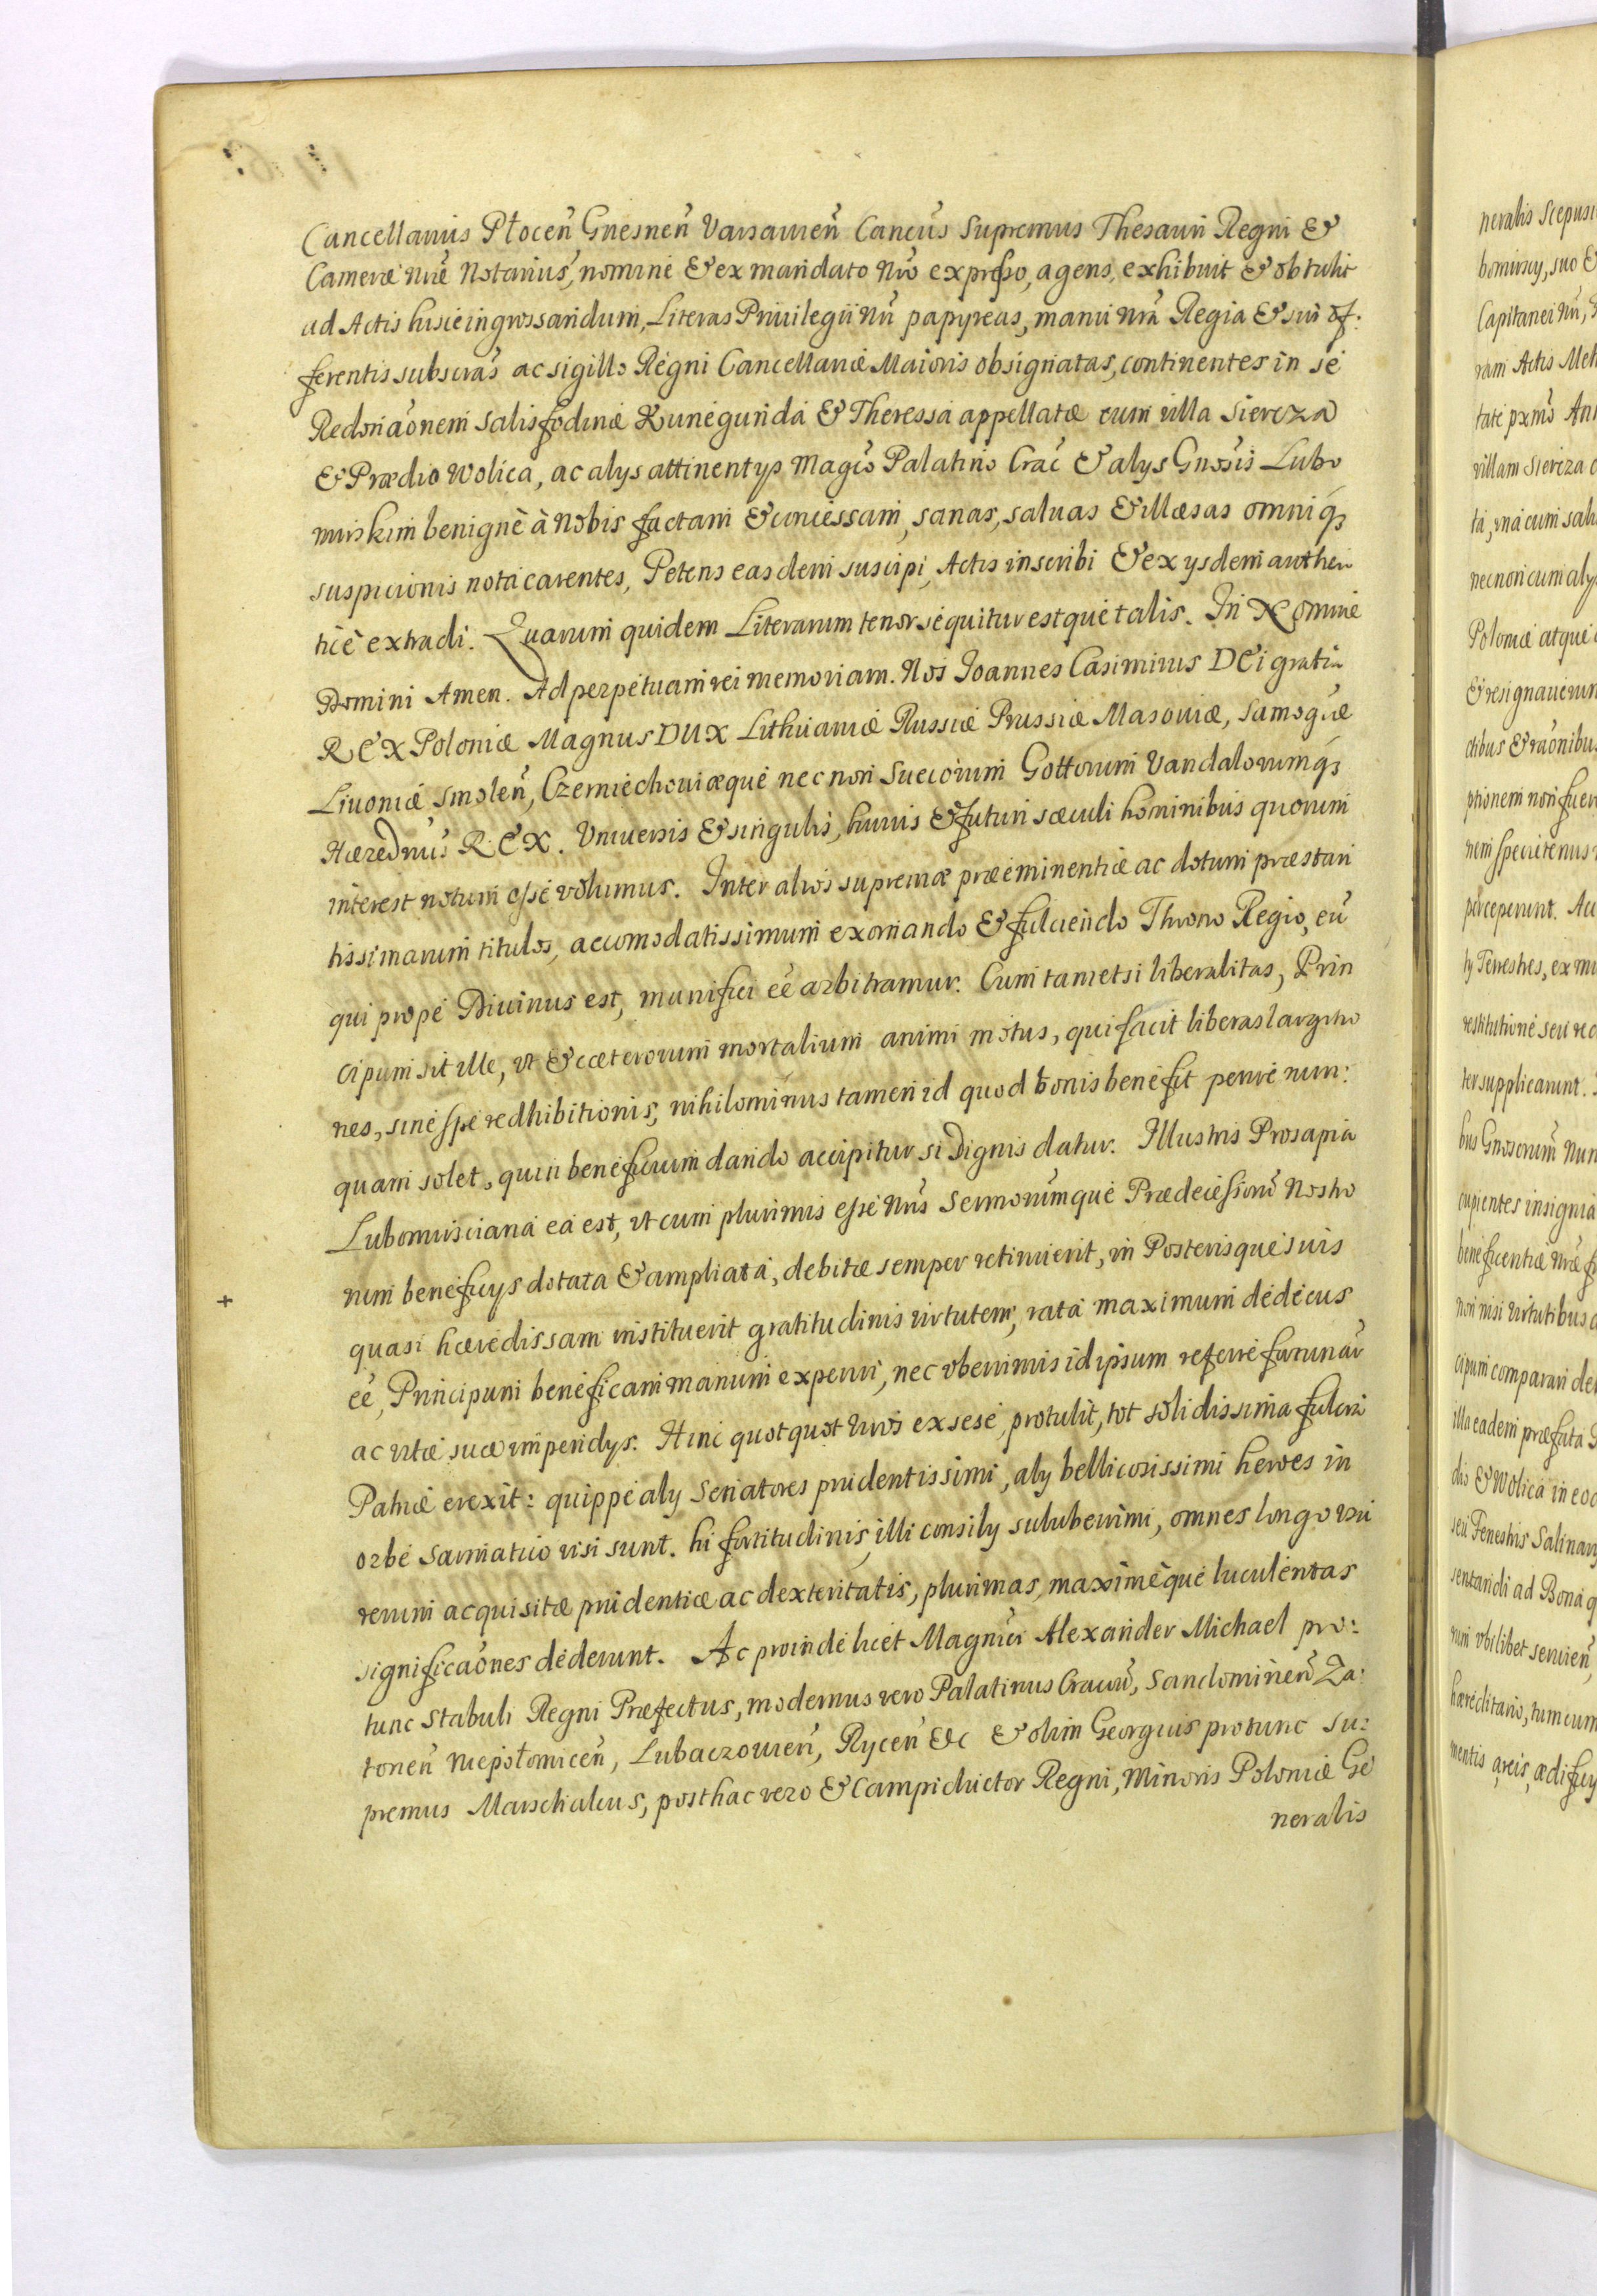 Cancellarius Płocen̄ Gnesnen̄ Varsavien̄ Cancūs Supremus Thesauri Regni &
Cameræ nr̄æ Notarius, nomine & ex mandato nr̄o expresso, agens, exhibuit & obtulit
ad Actis hisce ingrossandum, Literas Priuilegii nr̄i papyreas, manu nr̄a Regia & sui of:
ferentis subscrās ac sigillo Regni Cancellariæ Maioris obsignatas, continentes in se
Redonāonem Salisfodinæ Kunegunda & Theressa appellatæ cum villa Siercza
& Prædio Wolica, ac alys attinentys, Magco Palatino Crac̄ & alys Gnosis Lubo
mirskim benignè à nobis factam & concessam, sanas, saluas & illæsas omniq3
suspicionis nota carentes, Petens easdem suscipi, Actis inscribi & ex ysdem authen
ticè extradi. Quarum quidem Literarum tenor sequitur estque talis. In Nomine
Domini Amen. Ad perpetuam rei memoriam. Nos Joannes Casimirus DEi gratia
REX Poloniæ Magnus DUX Lithuaniæ Russiæ Prussiæ Masouiæ, Samogīæ
Liuoniæ Smolen̄, Czerniechouiæque nec non Suecorum Gottorum Vandalorumq3
Hæredr̄ius REX. Vniuersis & singulis, huius & futuri sæculi hominibus quorum
interest notum esse volumus. Inter alios supremæ præeminentiæ ac dotum præstan
tissimarum titulos, accomodatissimum exornando & fulciendo Throno Regio, eū
qui prope Diuinus est, munifici eē arbitramur. Cum tametsi liberalitas, Prin
cipum sit ille, vt & cæterorum mortalium animi motus, qui facit liberas largitio
nes, sine spe redhibitionis, nihilominus tamen id quod bonis benefit perire nun:
quam solet, quin beneficium dando accipitur si Dignis datur. Illustris Prosapia
Lubomirsciana ea est, vt cum plurimis esse nr̄is Sermorūmque Prædecessorū Nostro
rum beneficys dotata & ampliata, debitæ semper retinuerit, in Posterisque suis
quasi hæredissam instituerit gratitudinis virtutem, rata maximum dedecus
eē, Principum beneficam manum experiri, nec vberrimis id ipsum referre fortunar̄
ac vitæ suæ impendys. Hinc quotquot viros ex sese, protulit, tot solidissima fulcra
Patriæ erexit: quippe aly Senatores prudentissimi, aly bellicosissimi heroes in
orbe Sarmatico visi sunt. hi fortitudinis, illi consily saluberrimi, omnes longo vsu
rerum acquisitæ prudentiæ ac dexteritatis, plurimas, maximèque luculentas
significāones dederunt. Ac proinde licet Magnici Alexander Michael pro:
tunc Stabuli Regni Præfectus, modernus vero Palatinus Cracov̄, Sandomirien̄ Za:
tonen̄ Niepołomicen̄, Lubaczouien̄, Rycen̄ &c & olim Georgius protunc Su:
premus Marschalcus, posthac vero & Campiductor Regni, Minoris Poloniæ Ge
neralis
neralis Scepusi
Capitanei nr̄i,
villam Siercza
nec non cum aly
Poloniæ atque
& resignauerun
ptionem non fuer
perceperunt. Ac
ty Terrestres, ex
ter supplicarunt.
cupientes insignia
beneficentiæ nr̄æ
non nisi virtutibus
cipum comparari de
illa eadem præfata
dio & Wolica in eo
seu Fenestris Salinar
sentandi ad Bona
rum vbilibet seruien̄,
hæreditario, tum cum
mentis, areis, ædificy